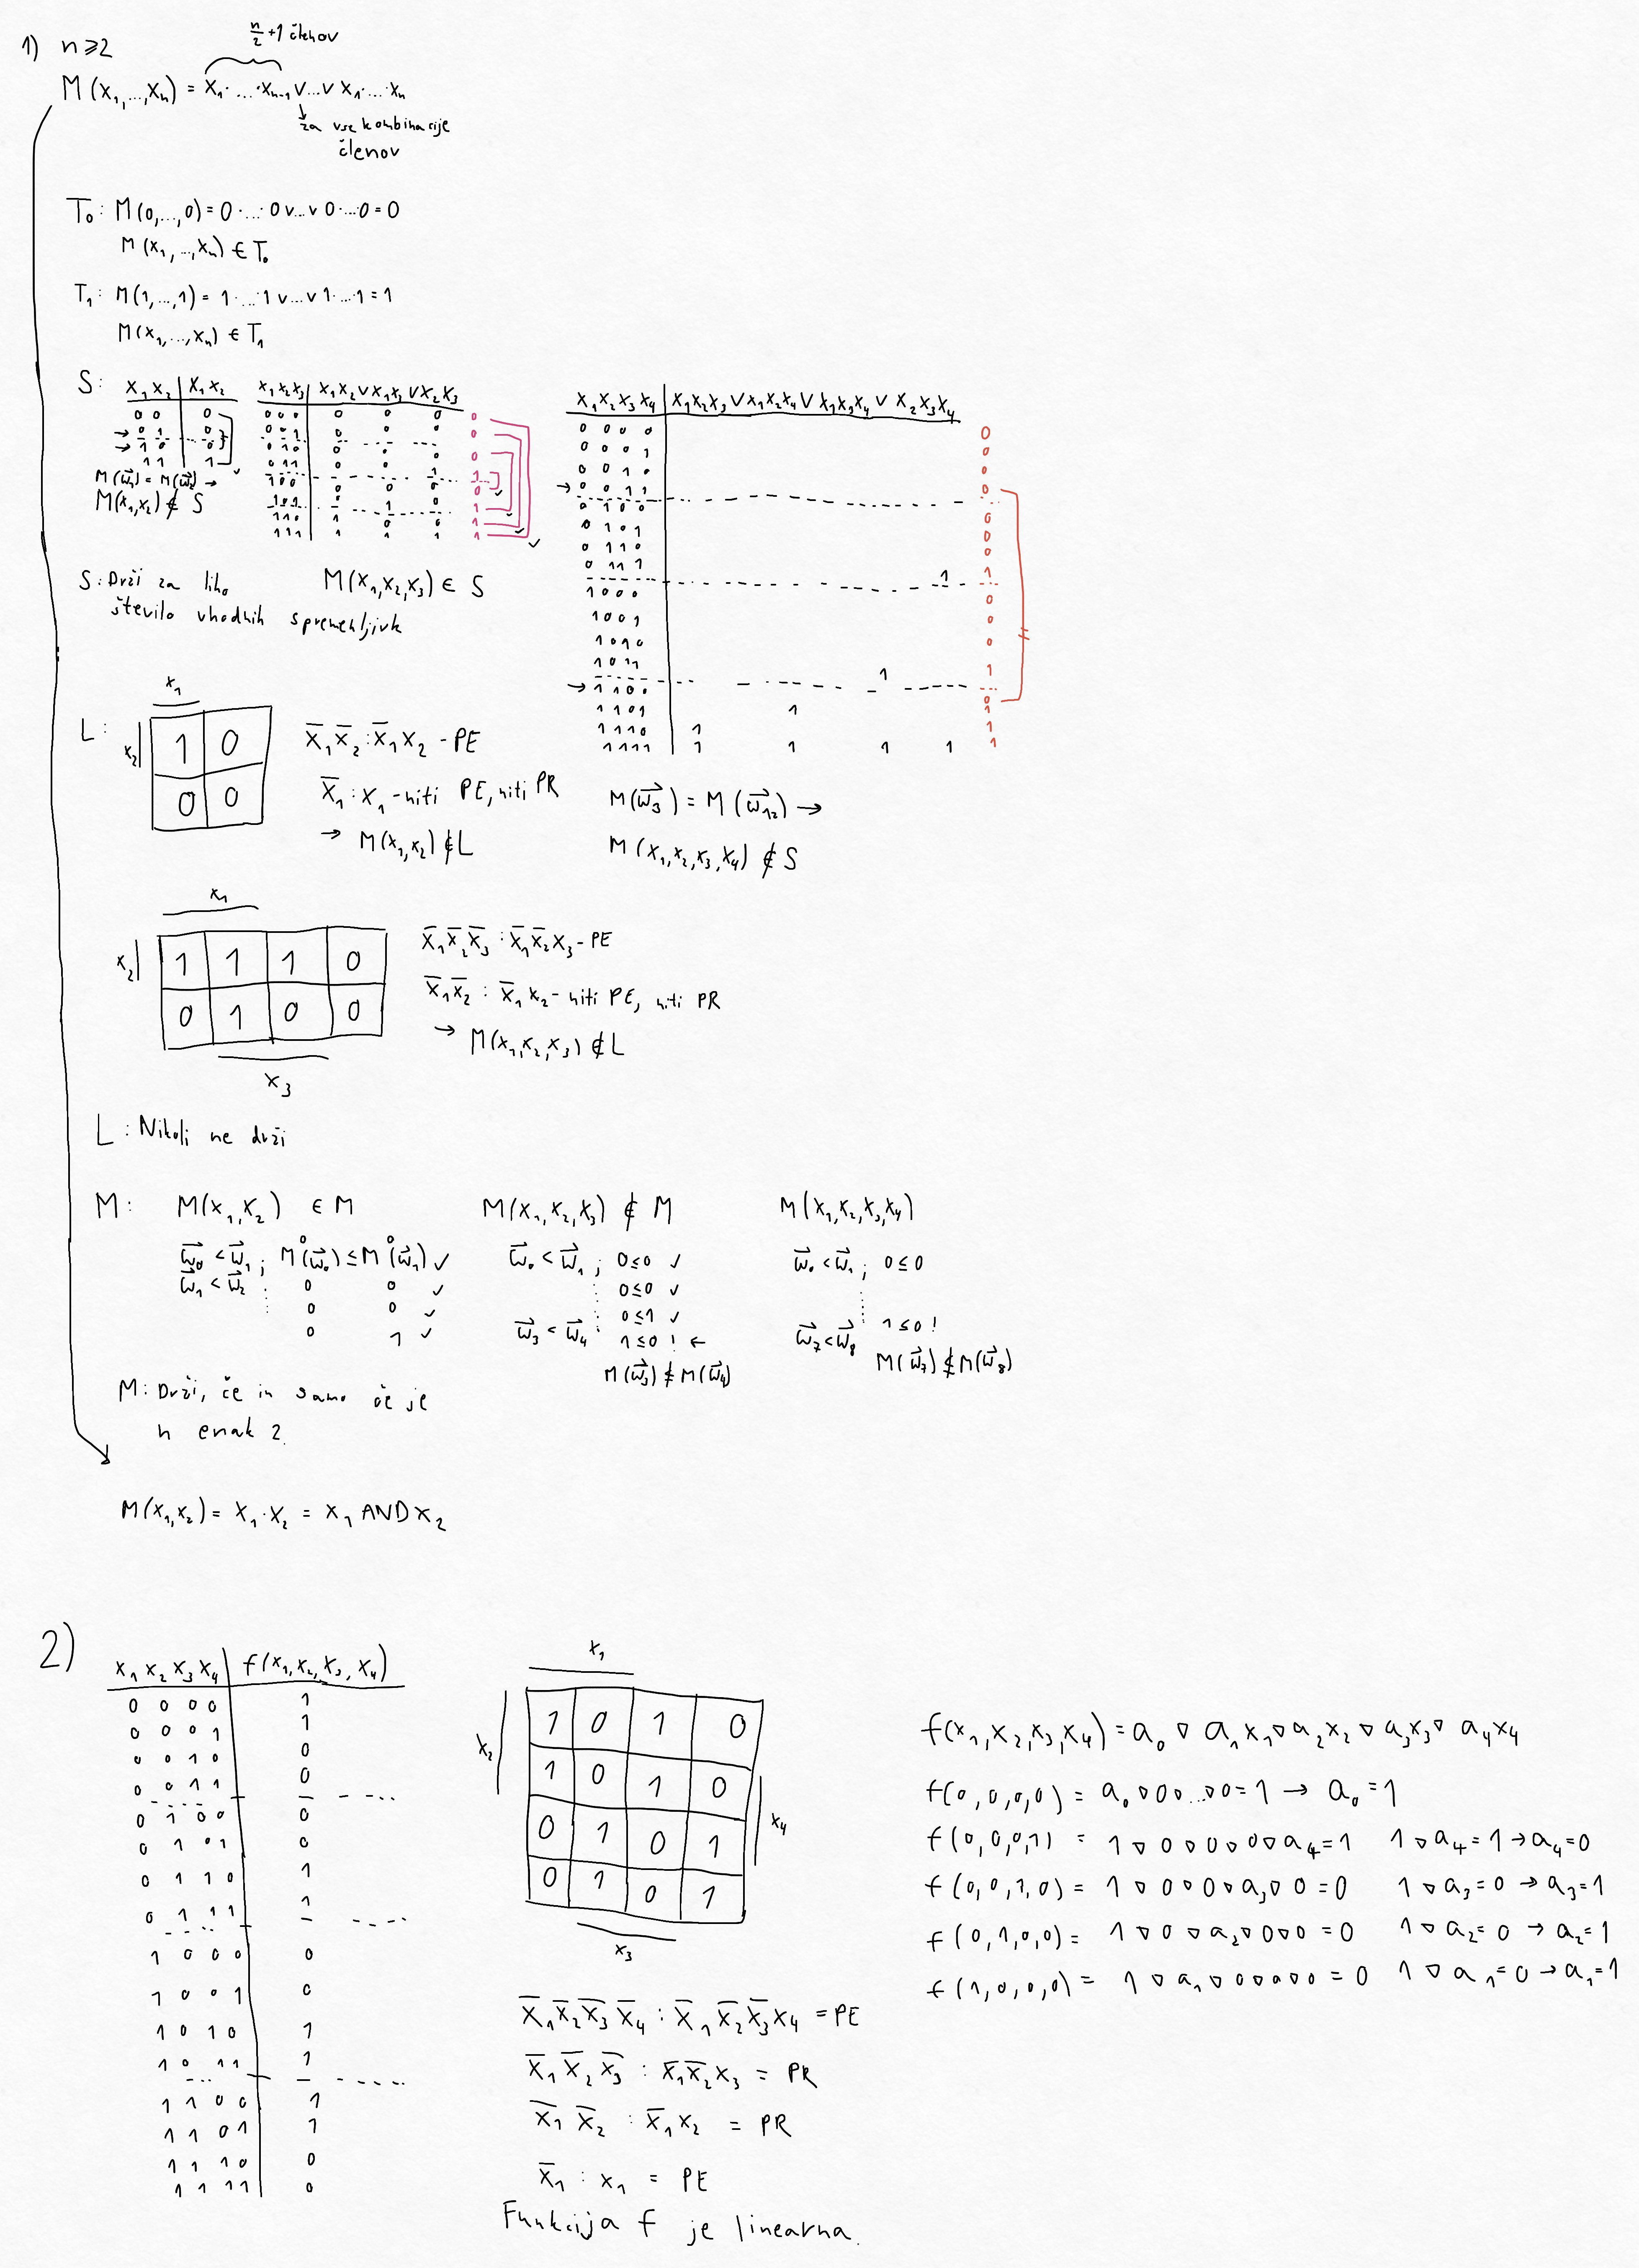 1) n ≥ 2
n/2 + 1 členov
M(x₁,...,xₙ) = x₁·...·xₙ₋₁ ∨...∨ x₁·...·xₙ
za vse kombinacije
členov
T₀: M(0,...,0) = 0·...·0 ∨...∨ 0·...·0 = 0
M(x₁,...,xₙ) ∈ T₀
T₁: M(1,...,1) = 1·...·1 ∨...∨ 1·...·1 = 1
M(x₁,...,xₙ) ∈ T₁
S: x₁ x₂ | x₁ x₂
0 0 | 0
→ 0 1 | 0
→ 1 0 | 0
1 1 | 1 ✓
M(w⃗₁) = M(w⃗₂) →
M(x₁,x₂) ∉ S
x₁x₂x₃ | x₁x₂ ∨ x₁x₃ ∨ x₂x₃
0 0 0 | 0 0 0 0
0 0 1 | 0 0 0 0
0 1 0 | 0 0 0 0
0 1 1 | 0 0 1 1
1 0 0 | 0 0 0 0
1 0 1 | 0 1 0 1
1 1 0 | 1 0 0 1
1 1 1 | 1 1 1 1
M(x₁,x₂,x₃) ∈ S
S: Drži za liho
število vhodnih spremenljivk
x₁x₂x₃x₄ | x₁x₂x₃ ∨ x₁x₂x₄ ∨ x₁x₃x₄ ∨ x₂x₃x₄
0 0 0 0 | 0
0 0 0 1 | 0
0 0 1 0 | 0
→ 0 0 1 1 | 0
0 1 0 0 | 0
0 1 0 1 | 0
0 1 1 0 | 0
0 1 1 1 | 1 1
1 0 0 0 | 0
1 0 0 1 | 0
1 0 1 0 | 0
1 0 1 1 | 1 1
→ 1 1 0 0 | 0
1 1 0 1 | 1 1
1 1 1 0 | 1 1
1 1 1 1 | 1 1 1 1 1
M(w⃗₃) = M(w⃗₁₂) →
M(x₁,x₂,x₃,x₄) ∉ S
L:
x₁
x₂
1 0
0 0
x̄₁x̄₂ : x̄₁x₂ - PE
x̄₁ : x₁ - niti PE, niti PR
→ M(x₁,x₂) ∉ L
x₁
x₂
1 1 1 0
0 1 0 0
x₃
x̄₁x̄₂x̄₃ : x̄₁x̄₂x₃ - PE
x̄₁x̄₂ : x̄₁x₂ - niti PE, niti PR
→ M(x₁,x₂,x₃) ∉ L
L: Nikoli ne drži
M: M(x₁,x₂) ∈ M
0 0
w⃗₀ < w⃗₁ ; M(w⃗₀) ≤ M(w⃗₁) ✓
w⃗₁ < w⃗₂ 0 0 ✓
0 0 ✓
0 1 ✓
M(x₁,x₂,x₃) ∉ M
w⃗₀ < w⃗₁ ; 0≤0 ✓
0≤0 ✓
0≤1 ✓
w⃗₃ < w⃗₄ 1≤0 ! ←
M(w⃗₃) ≰ M(w⃗₄)
M(x₁,x₂,x₃,x₄)
w⃗₀ < w⃗₁ ; 0≤0
1≤0 !
w⃗₇ < w⃗₈
M(w⃗₇) ≰ M(w⃗₈)
M: Drži, če in samo če je
n enak 2.
M(x₁,x₂) = x₁·x₂ = x₁ AND x₂
2)
x₁ x₂ x₃ x₄ | f(x₁,x₂,x₃,x₄)
0 0 0 0 | 1
0 0 0 1 | 1
0 0 1 0 | 0
0 0 1 1 | 0
0 1 0 0 | 0
0 1 0 1 | 0
0 1 1 0 | 1
0 1 1 1 | 1
1 0 0 0 | 0
1 0 0 1 | 0
1 0 1 0 | 1
1 0 1 1 | 1
1 1 0 0 | 1
1 1 0 1 | 1
1 1 1 0 | 0
1 1 1 1 | 0
x₁
x₂
1 0 1 0
1 0 1 0
x₄
0 1 0 1
0 1 0 1
x₃
x̄₁x̄₂x̄₃x̄₄ : x̄₁x̄₂x̄₃x₄ = PE
x̄₁x̄₂x̄₃ : x̄₁x̄₂x₃ = PR
x̄₁x̄₂ : x̄₁x₂ = PR
x̄₁ : x₁ = PE
Funkcija f je linearna.
f(x₁,x₂,x₃,x₄) = a₀ ∇ a₁x₁ ∇ a₂x₂ ∇ a₃x₃ ∇ a₄x₄
f(0,0,0,0) = a₀ ∇ 0 ∇...∇ 0 = 1 → a₀ = 1
f(0,0,0,1) = 1 ∇ 0 ∇ 0 ∇ 0 ∇ a₄ = 1 1 ∇ a₄ = 1 → a₄ = 0
f(0,0,1,0) = 1 ∇ 0 ∇ 0 ∇ a₃ ∇ 0 = 0 1 ∇ a₃ = 0 → a₃ = 1
f(0,1,0,0) = 1 ∇ 0 ∇ a₂ ∇ 0 ∇ 0 = 0 1 ∇ a₂ = 0 → a₂ = 1
f(1,0,0,0) = 1 ∇ a₁ ∇ 0 ∇ 0 ∇ 0 = 0 1 ∇ a₁ = 0 → a₁ = 1